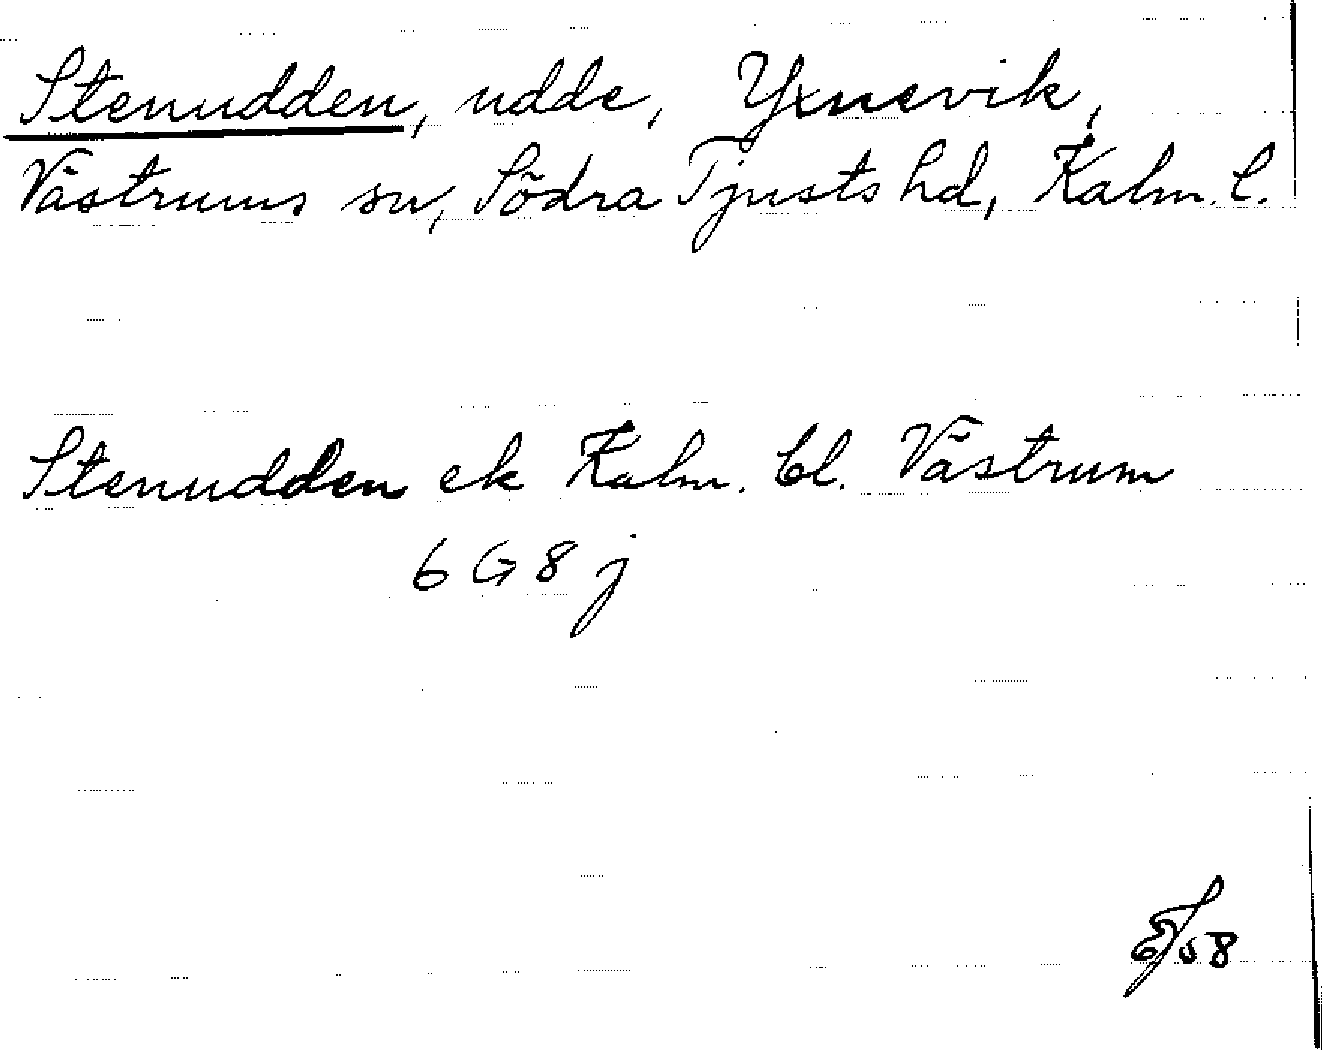 Stenudden, udde, Yxnevik,
Västrums sn, Södra Tjusts hd, Kalm. l.
Stenudden ek Kalm. bl. Västrum
6 G 8 j
58